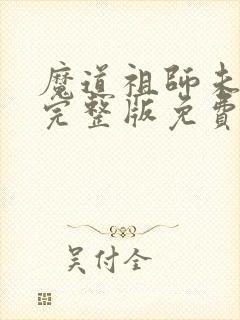 魔道祖師未
完整版免費
吴付全